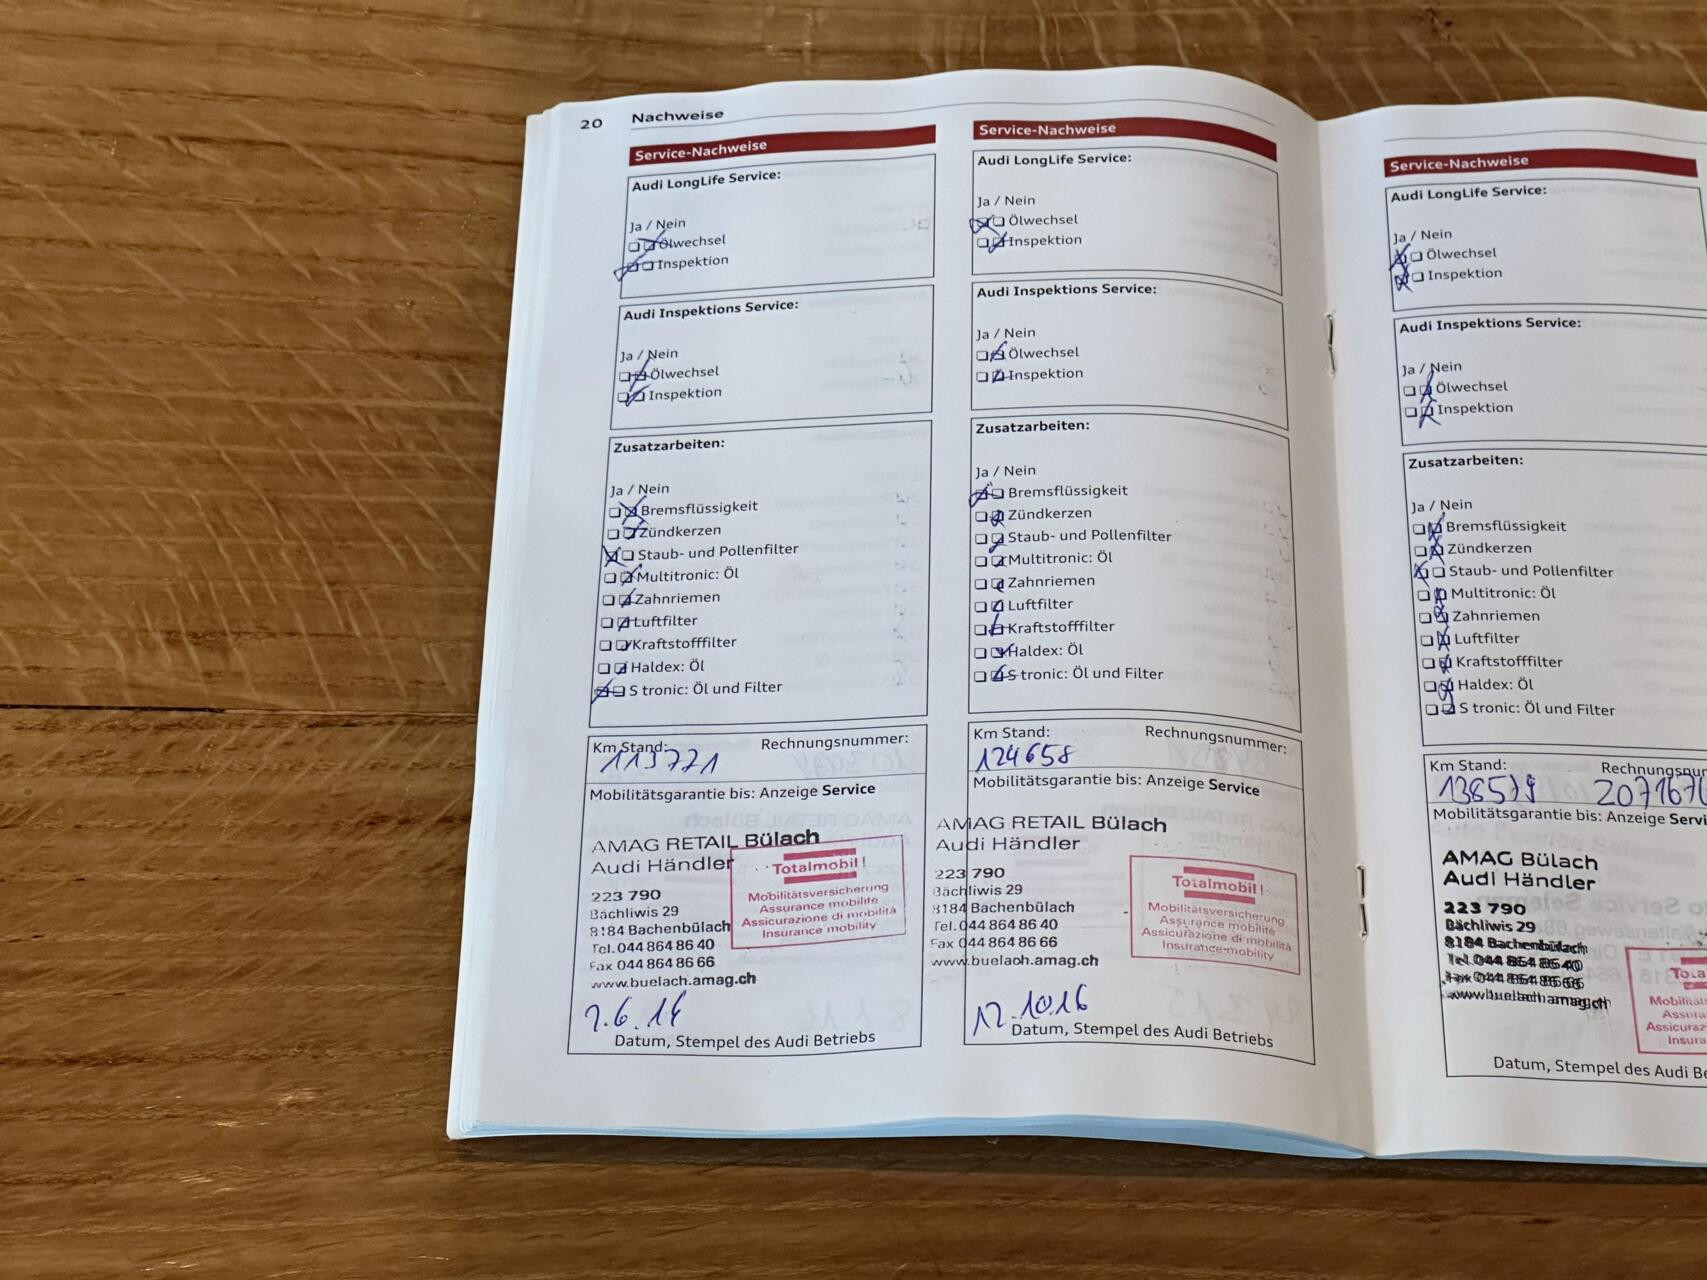 20 Nachweise
Service-Nachweise
Audi LongLife Service:
Ja / Nein
Ölwechsel
Inspektion
Audi Inspektions Service:
Ja / Nein
Ölwechsel
Inspektion
Zusatzarbeiten:
Ja / Nein
Bremsflüssigkeit
Zündkerzen
Staub- und Pollenfilter
Multitronic: Öl
Zahnriemen
Luftfilter
Kraftstofffilter
Haldex: Öl
S tronic: Öl und Filter
Km Stand: Rechnungsnummer:
113771
Mobilitätsgarantie bis: Anzeige Service
AMAG RETAIL Bülach
Audi Händler
223 790
Bächliwis 29
8184 Bachenbülach
Tel. 044 864 86 40
Fax 044 864 86 66
www.buelach.amag.ch
Totalmobil!
Mobilitätsversicherung
Assurance mobilité
Assicurazione di mobilità
Insurance mobility
Datum, Stempel des Audi Betriebs
Service-Nachweise
Audi LongLife Service:
Ja / Nein
Ölwechsel
Inspektion
Audi Inspektions Service:
Ja / Nein
Ölwechsel
Inspektion
Zusatzarbeiten:
Ja / Nein
Bremsflüssigkeit
Zündkerzen
Staub- und Pollenfilter
Multitronic: Öl
Zahnriemen
Luftfilter
Kraftstofffilter
Haldex: Öl
S tronic: Öl und Filter
Km Stand: Rechnungsnummer:
124658
Mobilitätsgarantie bis: Anzeige Service
AMAG RETAIL Bülach
Audi Händler
223 790
Bächliwis 29
8184 Bachenbülach
Tel. 044 864 86 40
Fax 044 864 86 66
www.buelach.amag.ch
Totalmobil!
Mobilitätsversicherung
Assurance mobilité
Assicurazione di mobilità
Insurance mobility
12.10.16
Datum, Stempel des Audi Betriebs
Service-Nachweise
Audi LongLife Service:
Ja / Nein
Ölwechsel
Inspektion
Audi Inspektions Service:
Ja / Nein
Ölwechsel
Inspektion
Zusatzarbeiten:
Ja / Nein
Bremsflüssigkeit
Zündkerzen
Staub- und Pollenfilter
Multitronic: Öl
Zahnriemen
Luftfilter
Kraftstofffilter
Haldex: Öl
S tronic: Öl und Filter
Km Stand: Rechnungsnu
138579 207167
Mobilitätsgarantie bis: Anzeige Servi
AMAG Bülach
Audi Händler
223 790
Bächliwis 29
8184 Bachenbülach
Tel. 044 864 86 40
Fax 044 864 86 66
www.buelach.amag.ch
Tota
Mobilität
Assura
Assicuraz
Insura
Datum, Stempel des Audi Be